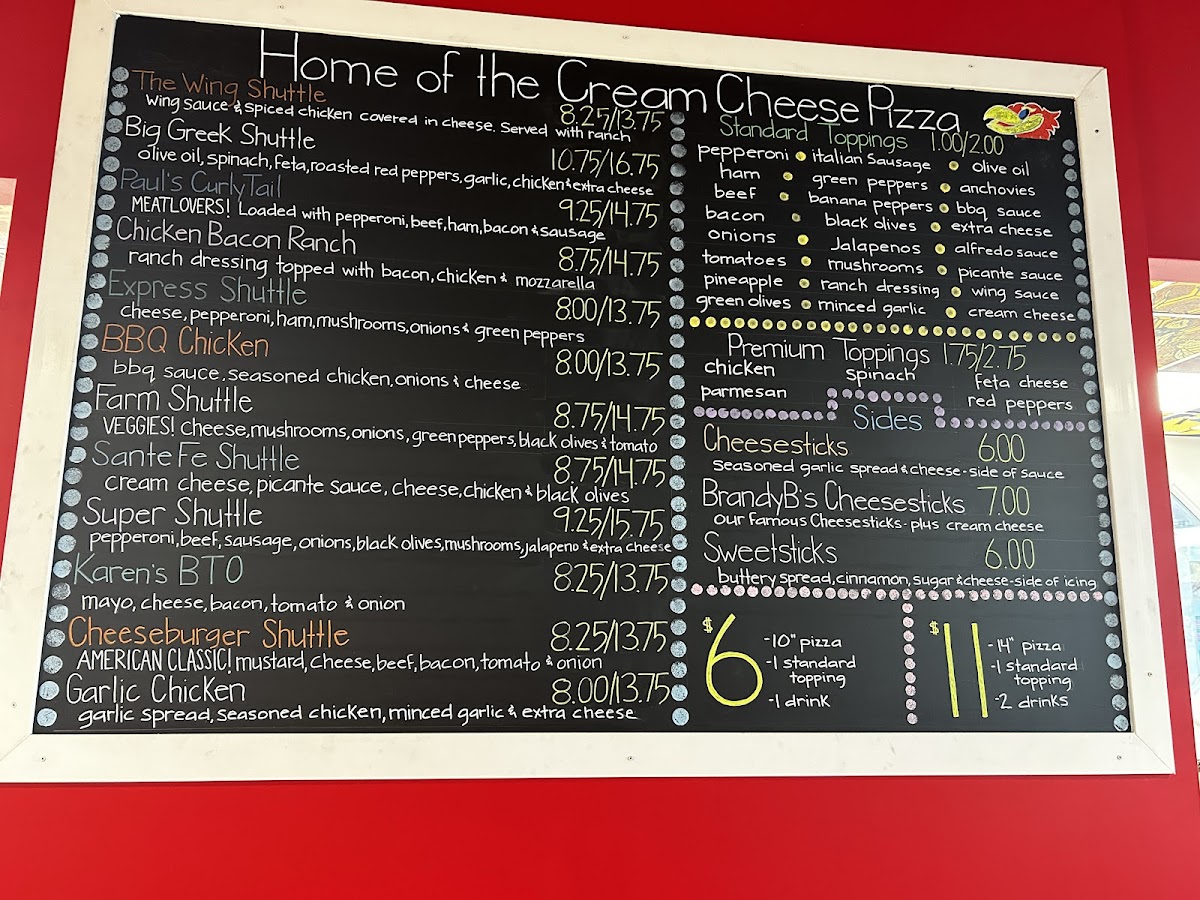 Home of the Cream Cheese Pizza
The Wing Shuttle 8.25/13.75
wing sauce & spiced chicken covered in cheese. Served with ranch
Big Greek Shuttle 10.75/16.75
olive oil, spinach, feta, roasted red peppers, garlic, chicken & extra cheese
Paul's CurlyTail 9.25/14.75
MEATLOVERS! Loaded with pepperoni, beef, ham, bacon & sausage
Chicken Bacon Ranch 8.75/14.75
ranch dressing topped with bacon, chicken & mozzarella
Express Shuttle 8.00/13.75
cheese, pepperoni, ham, mushrooms, onions & green peppers
BBQ Chicken 8.00/13.75
bbq sauce, seasoned chicken, onions & cheese
Farm Shuttle 8.75/14.75
VEGGIES! cheese, mushrooms, onions, green peppers, black olives & tomato
Sante Fe Shuttle 8.75/14.75
cream cheese, picante sauce, cheese, chicken & black olives
Super Shuttle 9.25/15.75
pepperoni, beef, sausage, onions, black olives, mushrooms, jalapeno & extra cheese
Karen's BTO 8.25/13.75
mayo, cheese, bacon, tomato & onion
Cheeseburger Shuttle 8.25/13.75
AMERICAN CLASSIC! mustard, cheese, beef, bacon, tomato & onion
Garlic Chicken 8.00/13.75
garlic spread, seasoned chicken, minced garlic & extra cheese
Standard Toppings 1.00/2.00
pepperoni italian sausage olive oil
ham green peppers anchovies
beef banana peppers bbq sauce
bacon black olives extra cheese
onions Jalapenos alfredo sauce
tomatoes mushrooms picante sauce
pineapple ranch dressing wing sauce
green olives minced garlic cream cheese
Premium Toppings 1.75/2.75
chicken spinach feta cheese
parmesan red peppers
Sides
Cheesesticks 6.00
seasoned garlic spread & cheese - side of sauce
BrandyB's Cheesesticks 7.00
our famous Cheesesticks - plus cream cheese
Sweetsticks 6.00
buttery spread, cinnamon, sugar & cheese - side of icing
$6
-10" pizza
-1 standard
topping
-1 drink
$11
-14" pizza
-1 standard
topping
-2 drinks